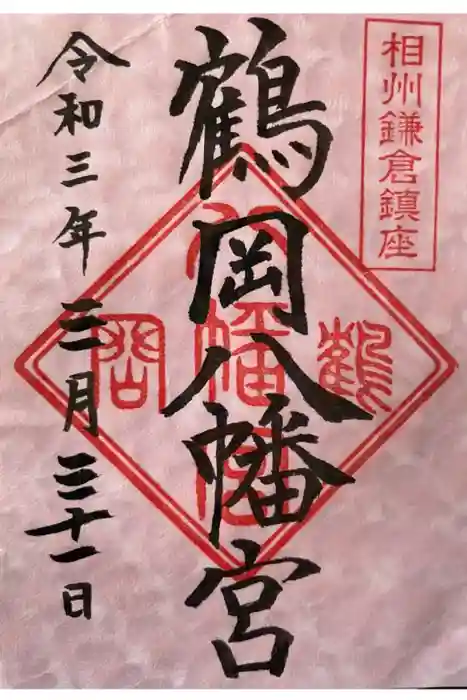 相州鎌倉鎮座
鶴岡八幡宮
鶴
八幡宮
岡
令和三年三月三十一日